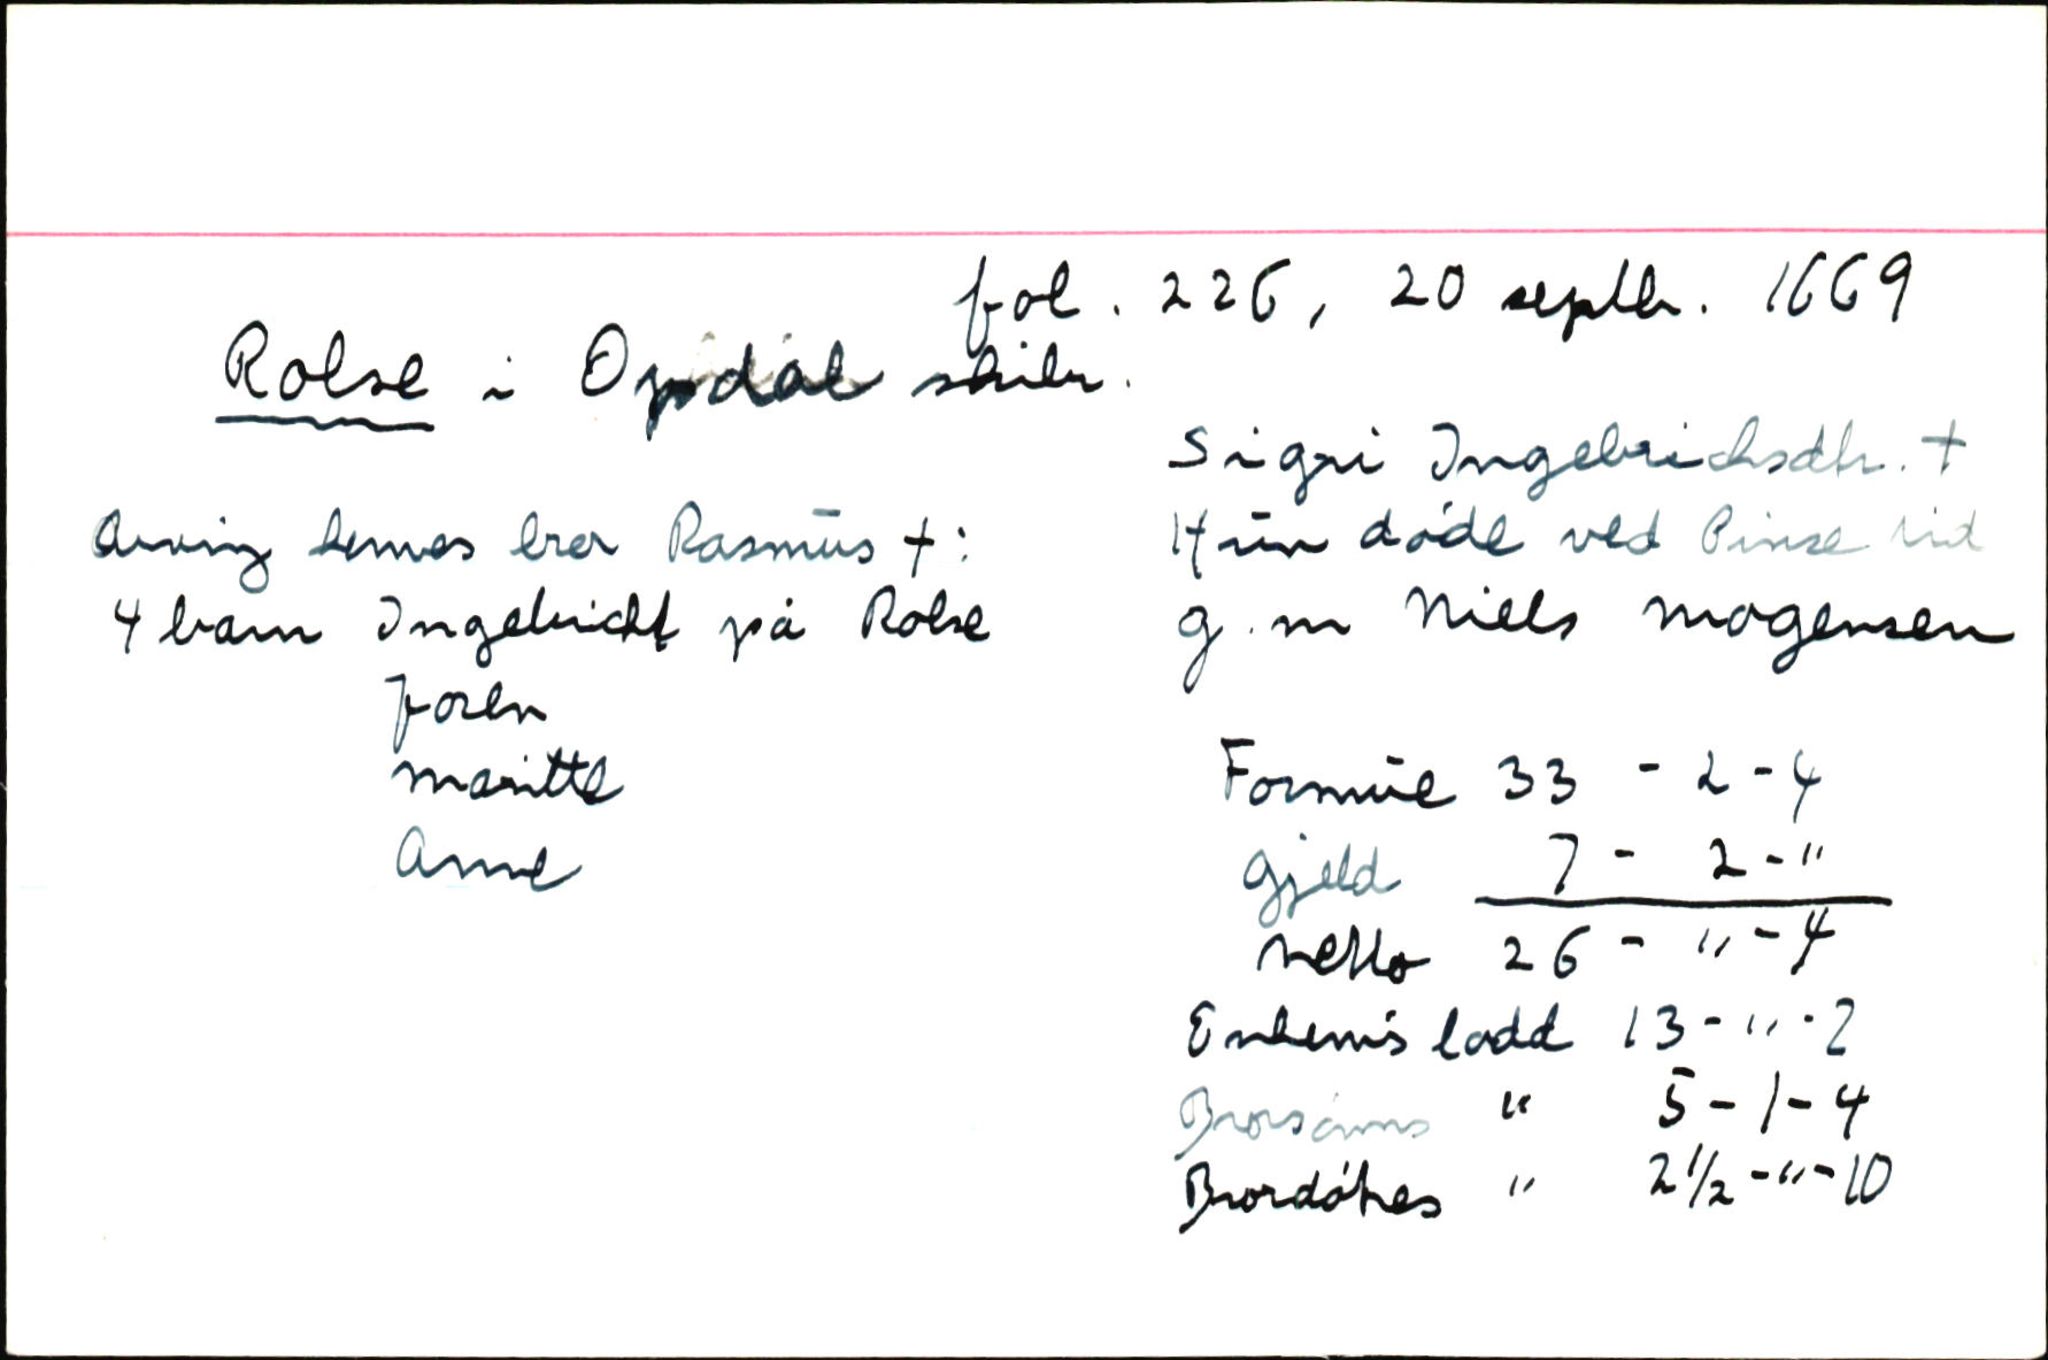 fol. 226, 20 septbr. 1669
Rolse i Opdal skibr.
Sigri Ingebrichsdtr. +
Hun døde ved Pinse tid
g.m Niels Mogensen
Arving hennes bror Rasmus +:
4 barn Ingebricht på Rolse
Joren
Maritte
Anne
Formue 33 - 2 - 4
Gjeld 7 - 2 - "
Netto 26 - " - 4
Enkem's lodd 13 - " - 2
Brorsønns " 5 - 1 - 4
Brordøtres " 2 1/2 - " - 10